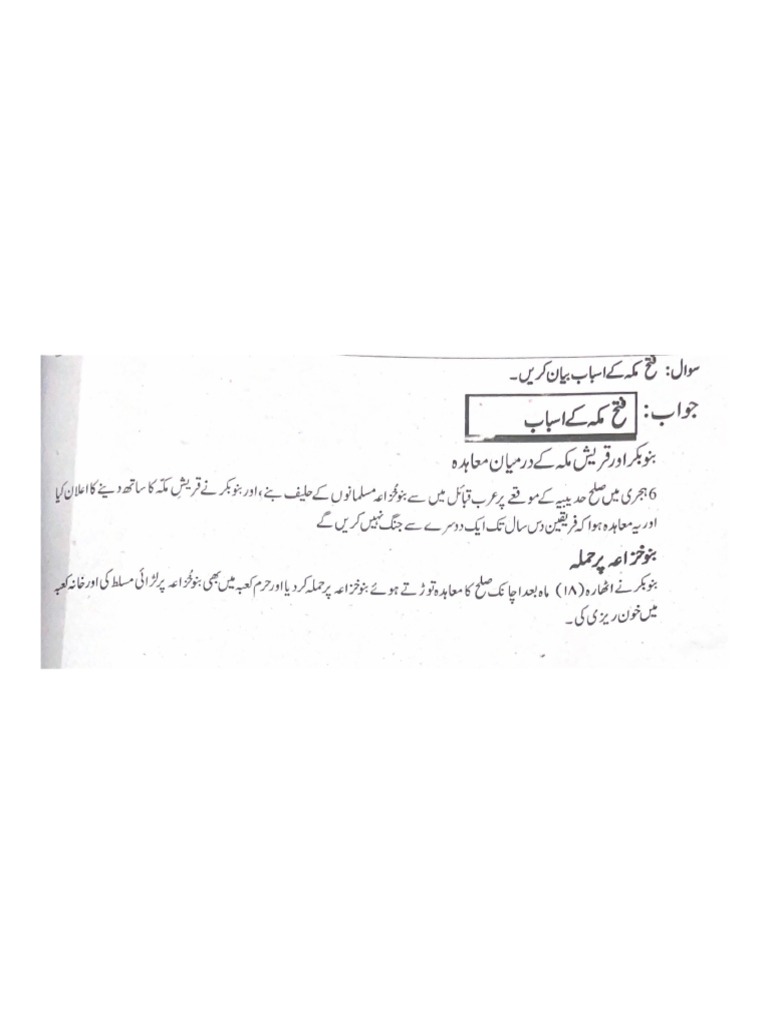 سوال: فتح مکہ کے اسباب بیان کریں۔
جواب: فتح مکہ کے اسباب
بنو بکر اور قریش مکہ کے درمیان معاہدہ
6 ہجری میں صلح حدیبیہ کے موقعے پر عرب قبائل میں سے بنو خُزاعہ مسلمانوں کے حلیف بنے، اور بنو بکر نے قریشِ مکہّ کا ساتھ دینے کا اعلان کیا
اور یہ معاہدہ ہوا کہ فریقین دس سال تک ایک دوسرے سے جنگ نہیں کریں گے
بنو خزاعہ پر حملہ
بنو بکر نے اٹھارہ (۱۸) ماہ بعد اچانک صلح کا معاہدہ توڑتے ہوئے بنو خزاعہ پر حملہ کر دیا اور حرم کعبہ میں بھی بنو خُزاعہ پر لڑائی مسلط کی اور خانہ کعبہ
میں خون ریزی کی۔